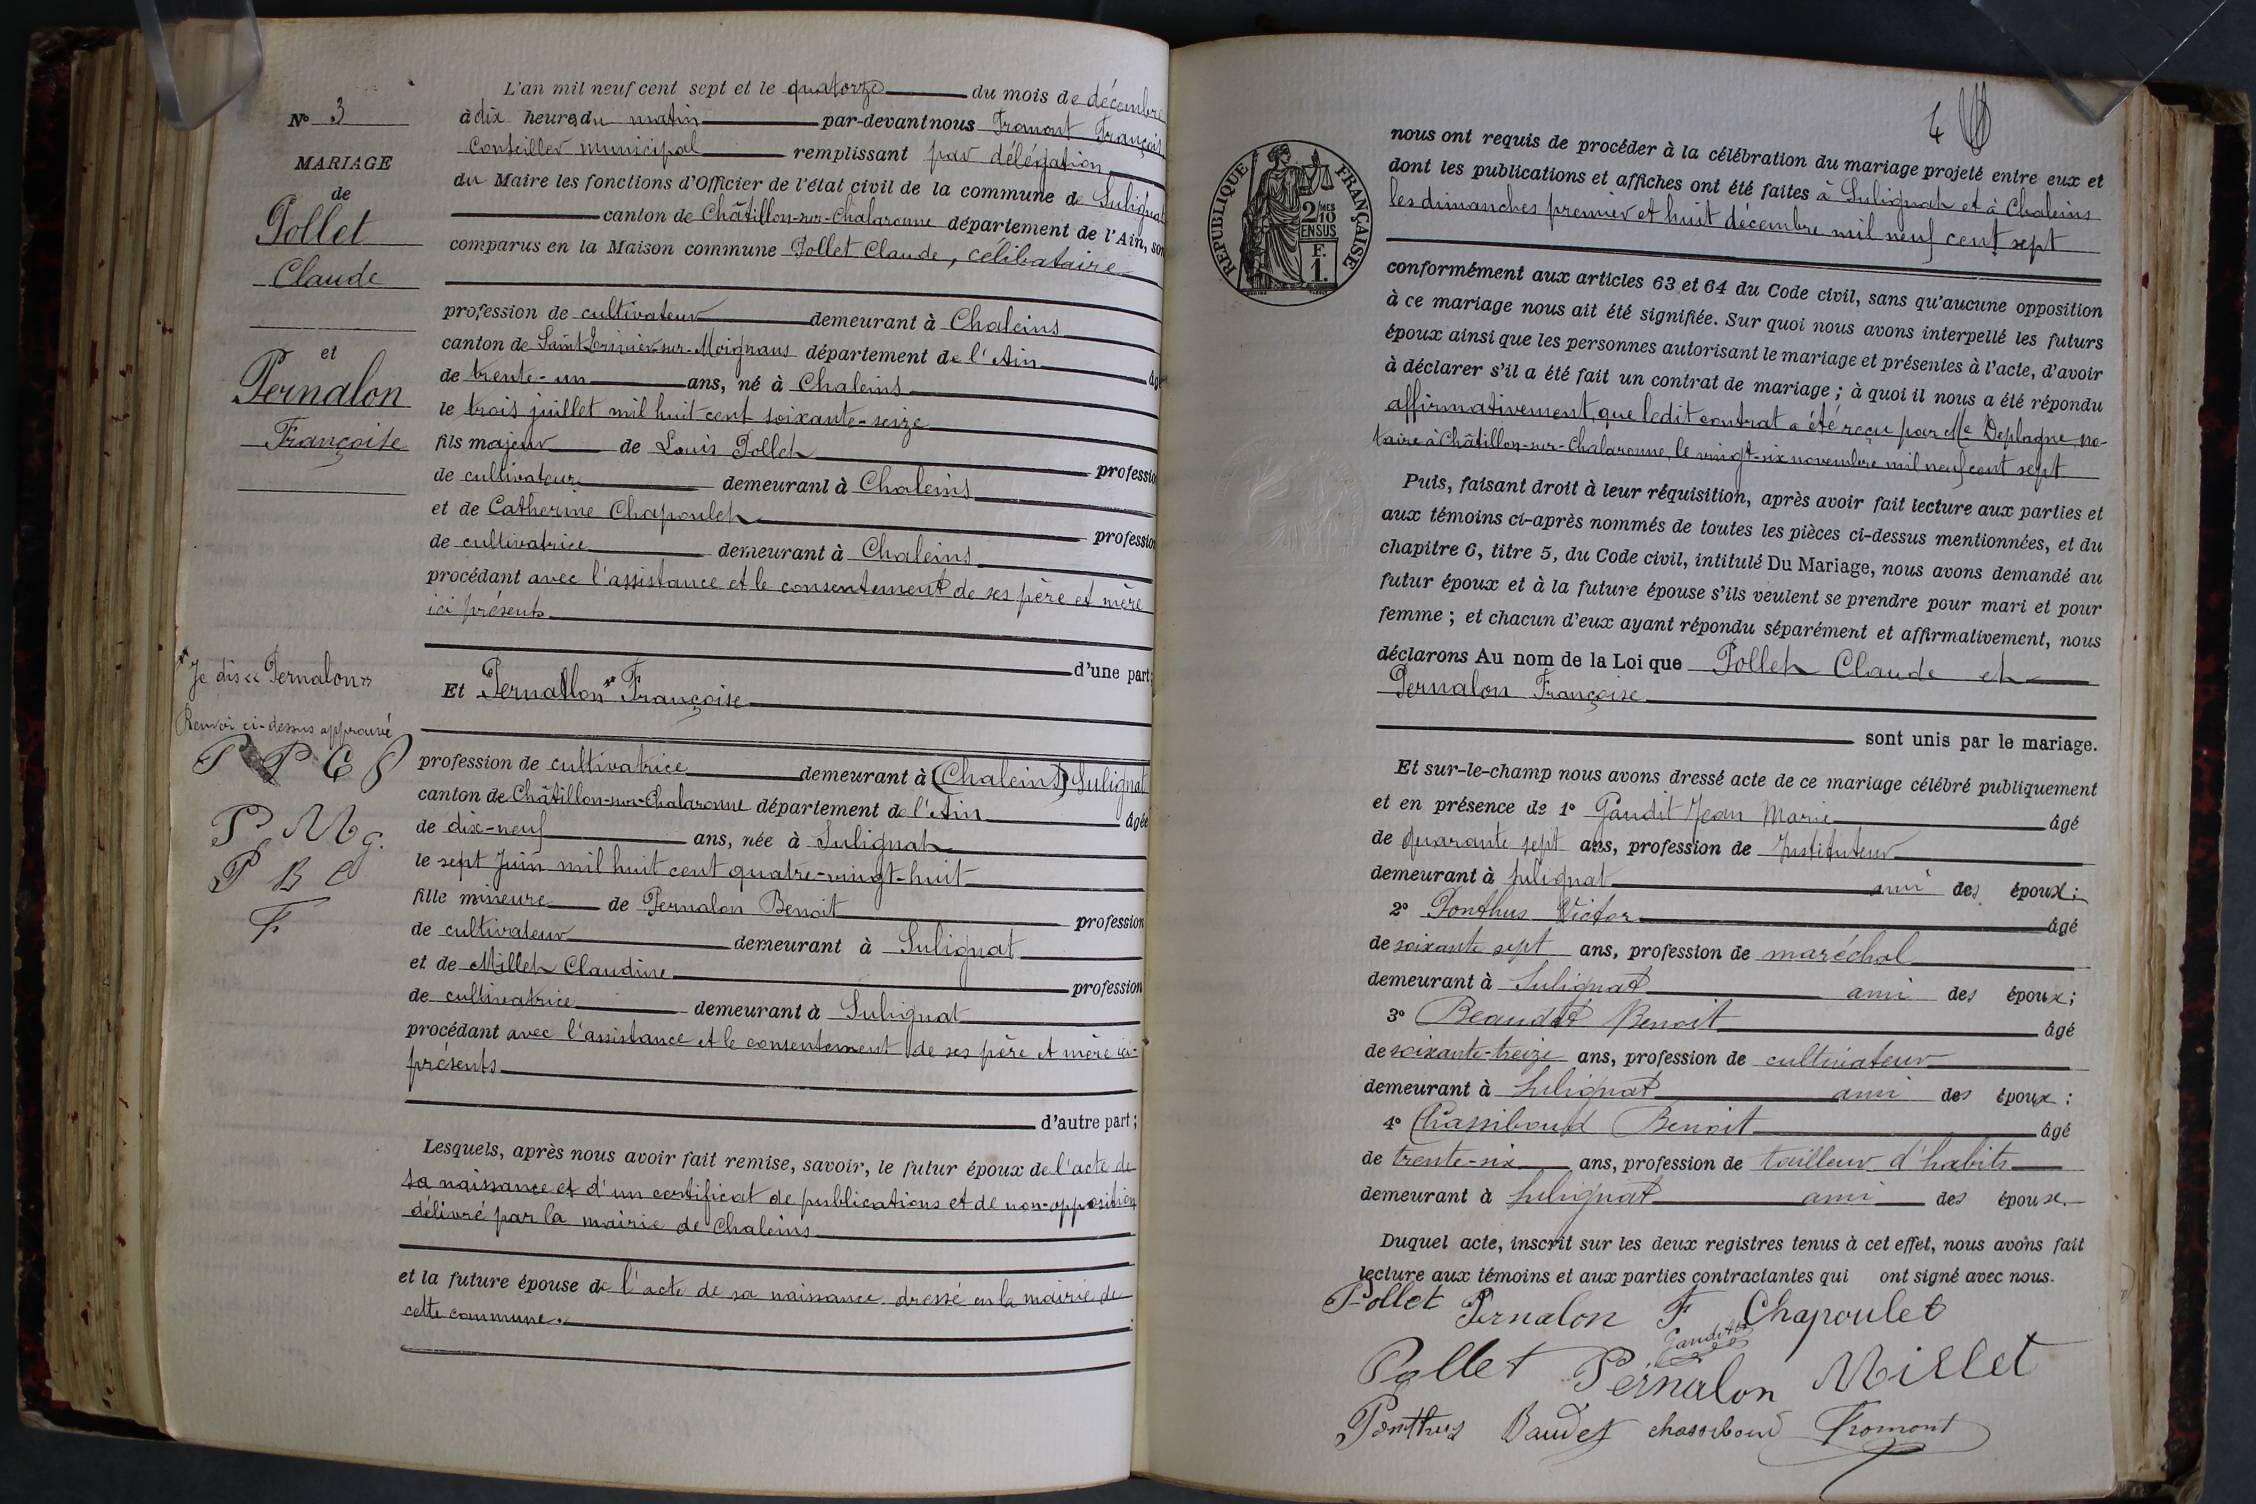 N° 3
MARIAGE
de
Pollet
Claude
et
Pernalon
Françoise
Je dis « Pernalon »
Renvoi ci-dessus approuvé
P P C
P M g.
P B C
F
L'an mil neuf cent sept et le quatorze du mois de décembre
à dix heures du matin par-devant nous Fromont François
Conseiller municipal remplissant par délégation
du Maire les fonctions d'Officier de l'état civil de la commune de Sulignat
canton de Châtillon-sur-Chalaronne département de l'Ain, son
comparus en la Maison commune Pollet Claude, célibataire
profession de cultivateur demeurant à Chaleins
canton de Saint-Trivier-sur-Moignans département de l'Ain âgé
de trente-un ans, né à Chaleins
le trois juillet mil huit cent soixante-seize
fils majeur de Louis Pollet profession
de cultivateur demeurant à Chaleins
et de Catherine Chapoulet profession
de cultivatrice demeurant à Chaleins
procédant avec l'assistance et le consentement de ses père et mère
ici présents
d'une part;
Et Pernallon Françoise
profession de cultivatrice demeurant à (Chaleins) Sulignat
canton de Châtillon-sur-Chalaronne département de l'Ain âgée
de dix-neuf ans, née à Sulignat
le sept Juin mil huit cent quatre-vingt-huit
fille mineure de Pernalon Benoit profession
de cultivateur demeurant à Sulignat
et de Millet Claudine profession
de cultivatrice demeurant à Sulignat
procédant avec l'assistance et le consentement de ses père et mère ici-
présents
d'autre part;
Lesquels, après nous avoir fait remise, savoir, le futur époux de l'acte de
sa naissance et d'un certificat de publications et de non-opposition
délivré par la mairie de Chaleins
et la future épouse de l'acte de sa naissance dressé en la mairie de
cette commune.
4
RÉPUBLIQUE FRANÇAISE
2/10 MES
EN SUS
F.
1.
nous ont requis de procéder à la célébration du mariage projeté entre eux et
dont les publications et affiches ont été faites à Sulignat et à Chaleins
les dimanches premier et huit décembre mil neuf cent sept
conformément aux articles 63 et 64 du Code civil, sans qu'aucune opposition
à ce mariage nous ait été signifiée. Sur quoi nous avons interpellé les futurs
époux ainsi que les personnes autorisant le mariage et présentes à l'acte, d'avoir
à déclarer s'il a été fait un contrat de mariage ; à quoi il nous a été répondu
affirmativement, que ledit contrat a été reçu par Me Deplagne, no-
taire à Châtillon-sur-Chalaronne, le vingt-six novembre mil neuf cent sept
Puis, faisant droit à leur réquisition, après avoir fait lecture aux parties et
aux témoins ci-après nommés de toutes les pièces ci-dessus mentionnées, et du
chapitre 6, titre 5, du Code civil, intitulé Du Mariage, nous avons demandé au
futur époux et à la future épouse s'ils veulent se prendre pour mari et pour
femme ; et chacun d'eux ayant répondu séparément et affirmativement, nous
déclarons Au nom de la Loi que Pollet Claude et
Pernalon Françoise
sont unis par le mariage.
Et sur-le-champ nous avons dressé acte de ce mariage célébré publiquement
et en présence de 1° Gaudit Jean Marie âgé
de quarante sept ans, profession de Instituteur
demeurant à Sulignat ami des époux;
2° Ponthus Victor âgé
de soixante sept ans, profession de maréchal
demeurant à Sulignat ami des époux;
3° Beaudet Benoit âgé
de soixante-treize ans, profession de cultivateur
demeurant à Sulignat ami des époux;
4° Chassiboud Benoit âgé
de trente-six ans, profession de tailleur d'habits
demeurant à Sulignat ami des époux.
Duquel acte, inscrit sur les deux registres tenus à cet effet, nous avons fait
lecture aux témoins et aux parties contractantes qui ont signé avec nous.
Pollet Pernalon F Chapoulet
Pollet Pernalon Millet
Ponthus Baudet chassiboud Fromont